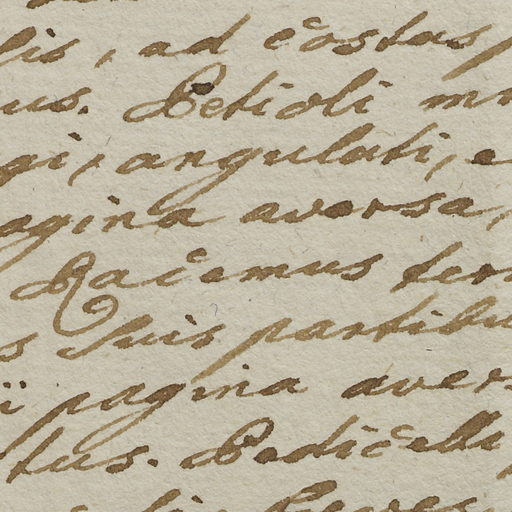 lis, ad costas
us. Petioli
gi, angulati,
agina aversa,
Racemus ter
s suis partibu
ii pagina avers
tus. Pedicelli